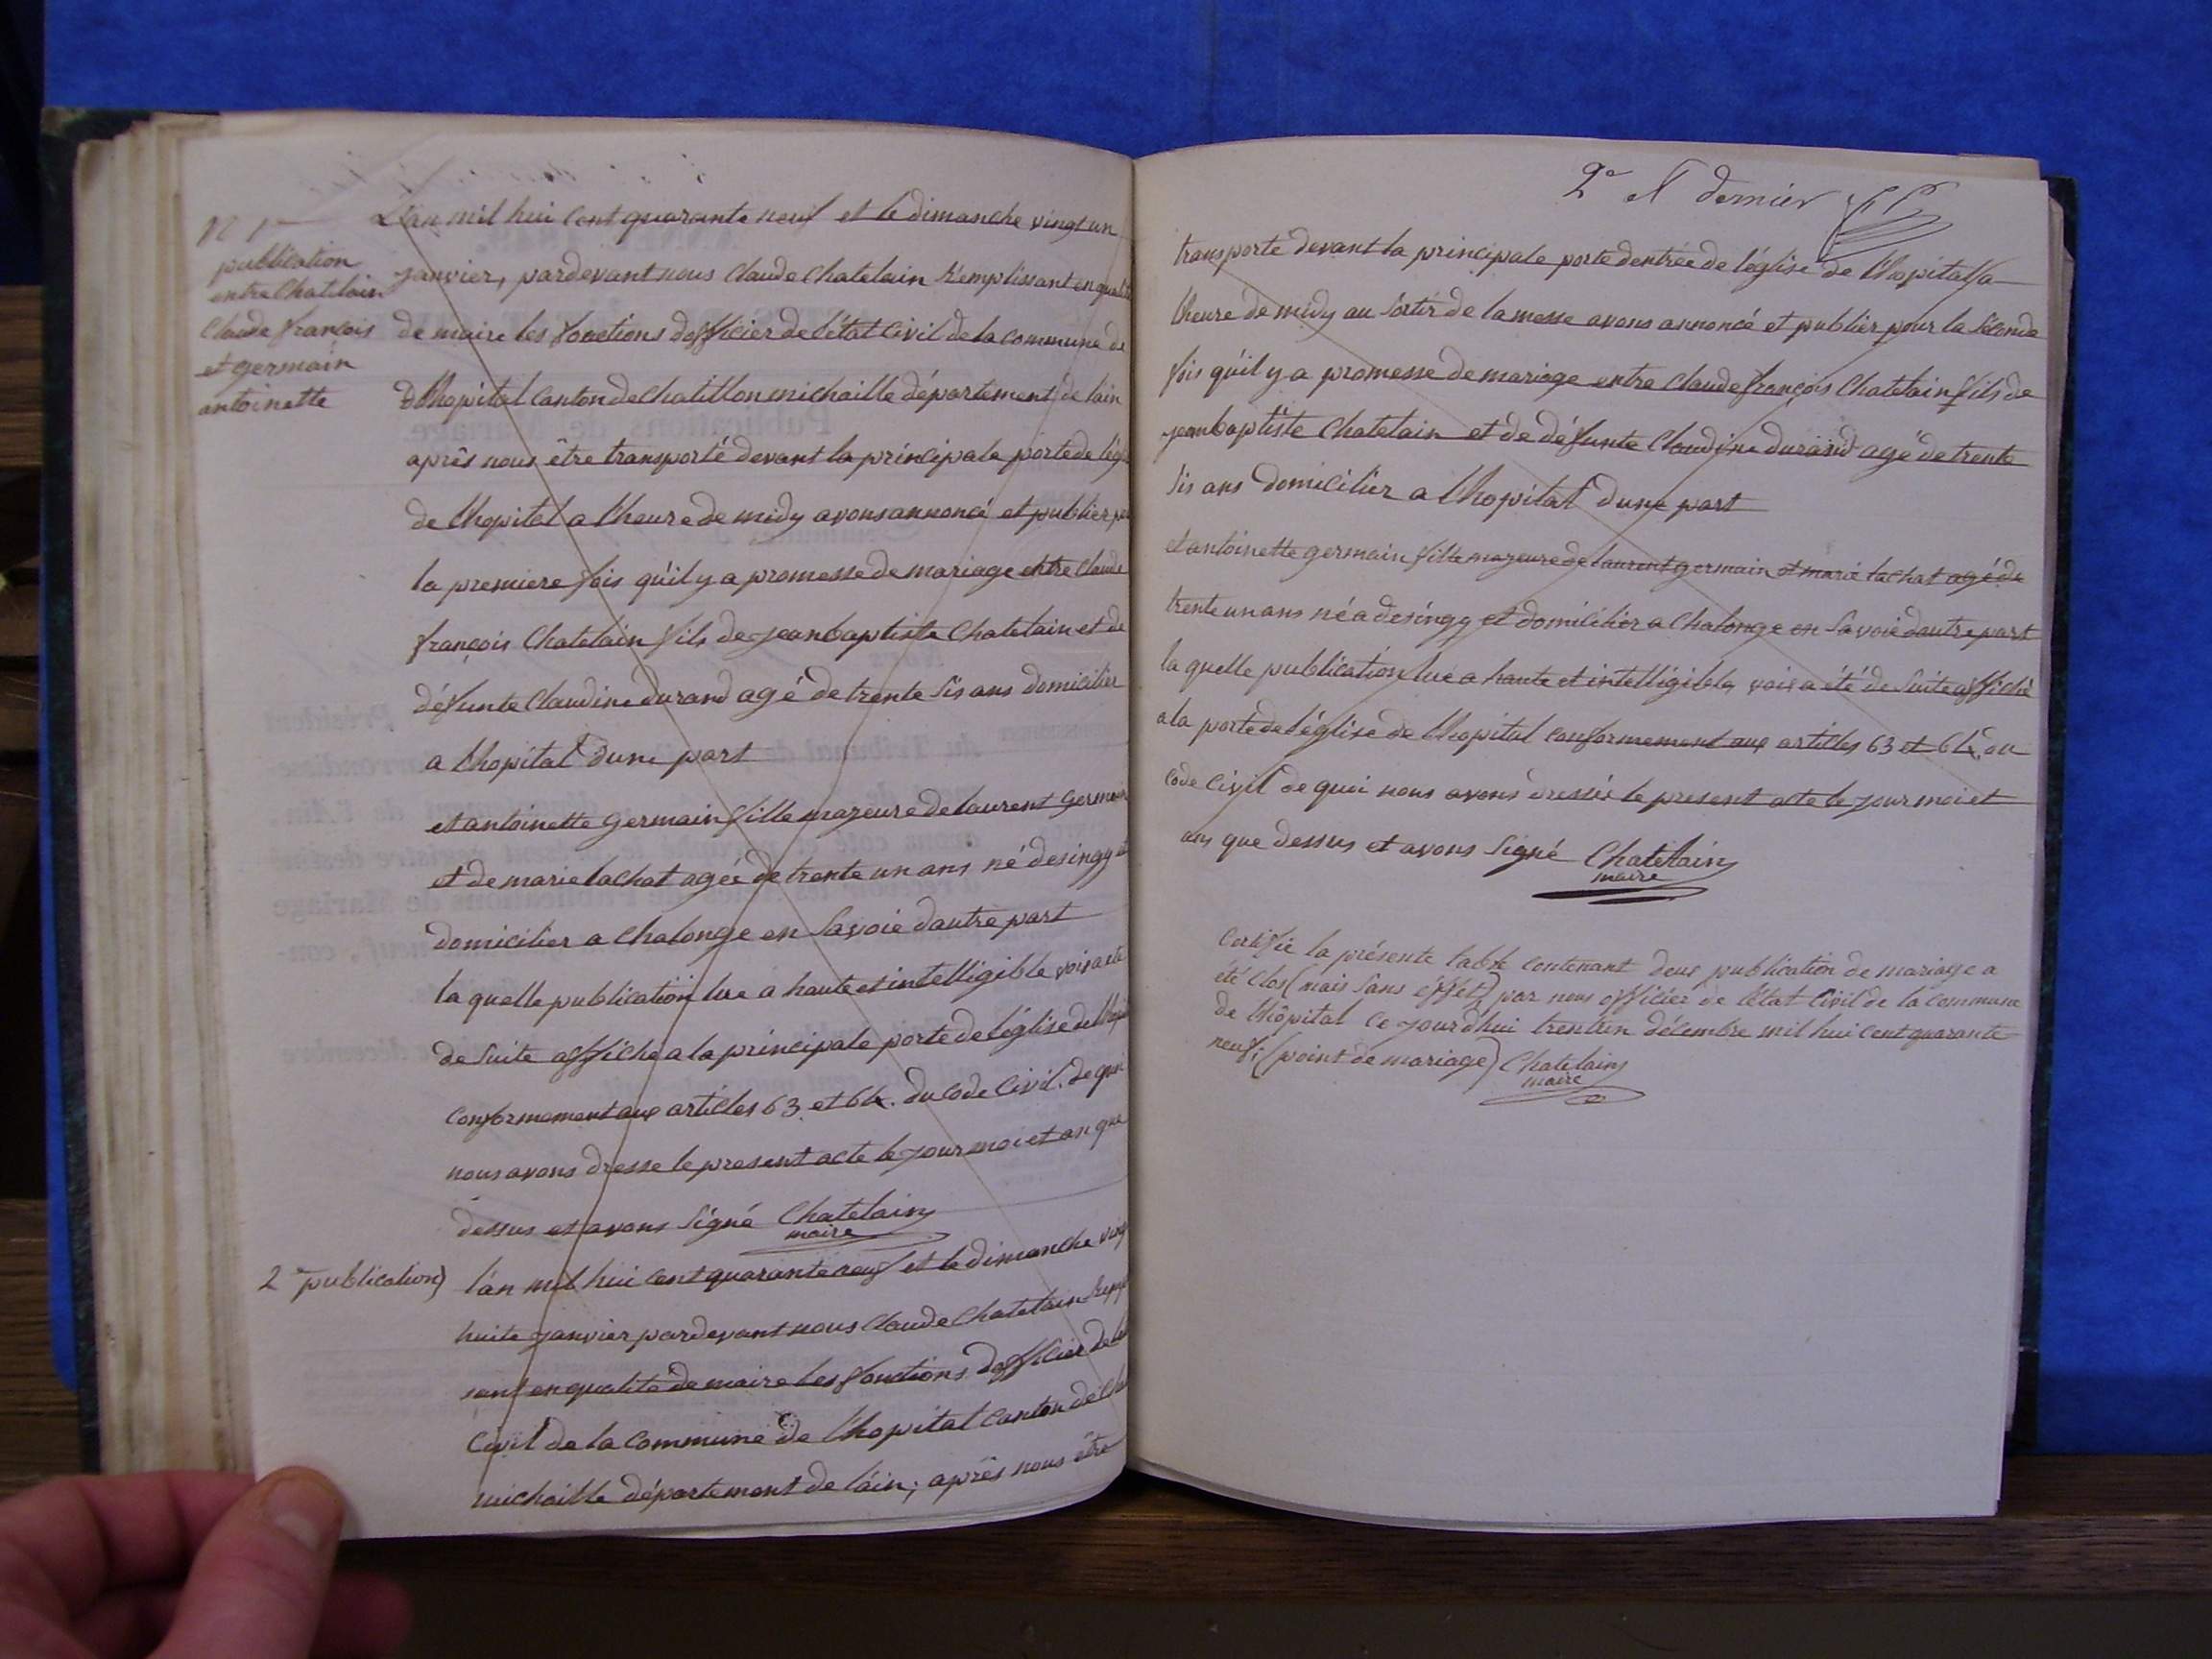 N 1
publication
entre Chatelain
Claude françois
et germain
antoinette
L'an mil hui cent quarante neuf et le dimanche vingt un
janvier, pardevant nous Claude Chatelain Remplissant en qualité
de maire les fonctions dofficier de l'état Civil de la commune de
Lhopital Canton de Chatillon michaille département de lain
après nous être transporté devant la principale porte de
de Lhopital a lheure de midy avons annoncé et publier
la premiere fois qu'il y a promesse de mariage entre Claude
françois Chatelain fils de jean baptiste Chatelain et de
défunte Claudine durand agé de trente sis ans domicilier
a Lhopital dune part
et antoinette germain fille mazeure de laurent germain
et de marie lachat agée de trente un ans né desingy et
domicilier a Chalonge en Savoie dautre part
la quelle publication lue a haute et intelligible voix a été
de suite affiche a la principale porte de léglise de
conformement aux articles 63 et 64. du Code Civil. de quoi
nous avons dresse le present acte le jour moi et an que
dessus et avons Signé Chatelain
maire
2e publication
l'an mil hui cent quarante neuf et le dimanche
huite janvier pardevant nous Claude Chatelain
sant en qualité de maire les fonctions dofficier de
Civil de la commune de Lhopital Canton de
michaille département de l'ain; après nous être
2e et dernier
transporte devant la principale porte dentrée de léglise de Lhopital a
lheure de midy au sortir de la messe avons annoncé et publier pour la Séconde
fois qu'il y a promesse de mariage entre Claude françois Chatelain fils de
jean baptiste Chatelain et de défunte Claudine durand agé de trente
sis ans domicilier a Lhopital dune part
et antoinette germain fille mazeure de laurent germain et marie lachat agé de
trente un ans né a desingy et domicilier a Chalonge en Savoie dautre part
la quelle publication lue a haute et intelligible voix a été de suite affiché
a la porte de l'église de Lhopital conformement aux articles 63 et 64. du
code Civil de quoi nous avons dressée le present acte le jour moi et
ans que dessus et avons Signé Chatelain
maire
Certifie la présente table contenant deux publication de mariage a
été Clos (mais Sans effet) par nous officier de l'état Civil de la commune
de Lhôpital Ce jourdhui trentun décembre mil hui cent quarante
neuf; (point de mariage) Chatelain
maire